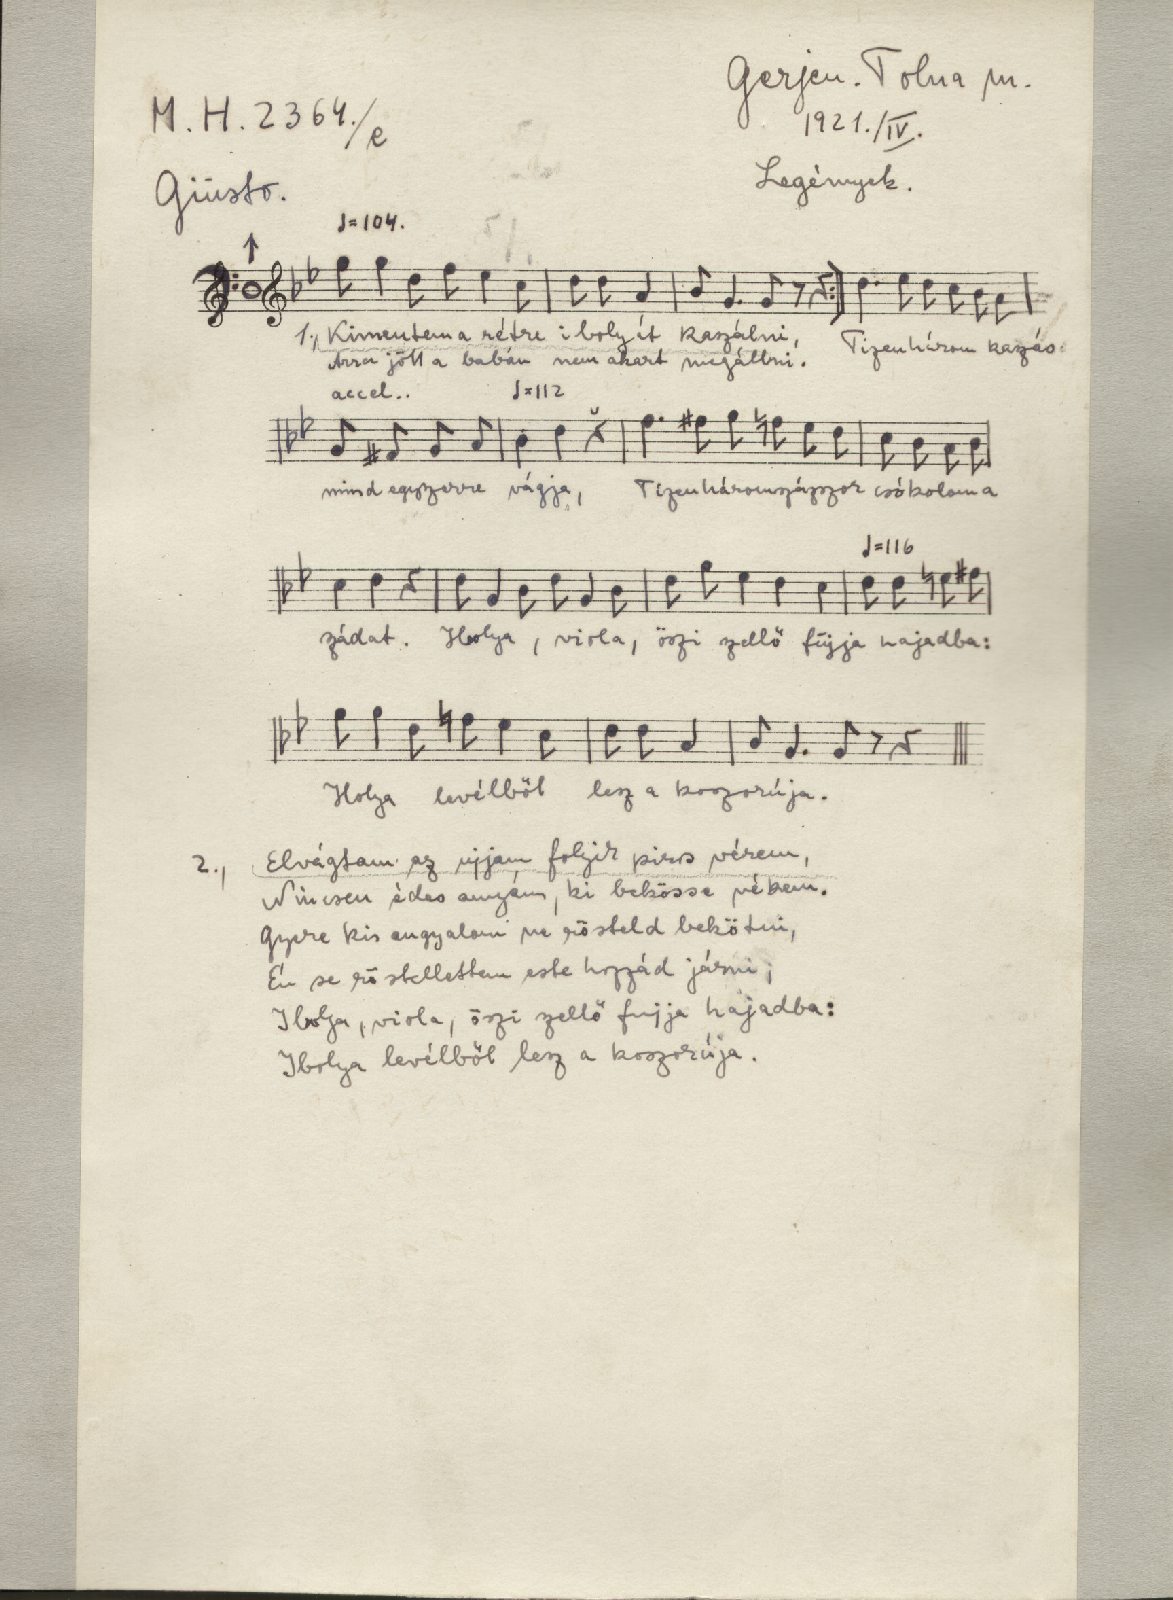 Gerjen. Tolna m.
M.H. 2364./e
1921./IV.
Legények.
Giusto.
♩=104.
1., Kimentem a rétre ibolyát kaszálni, Tizenhárom kaszás
Arra jött a babám nem akart megállni.
accel.. ♩=112
mind egyszerre vágja, Tizenháromszázszor csókolom a
♩=116
zádat. Ibolya, viola, öszi zellő fújja hajadba:
Ibolya levélből lesz a koszorúja.
2., Elvágtam az ujjam folyik piros vérem,
Nincsen édes anyám, ki bekösse nékem.
Gyere kis angyalom ne rösteld bekötni,
Én se röstellettem este hozzád járni;
Ibolya, viola, öszi zellő fujja hajadba:
Ibolya levélből lesz a koszorúja.